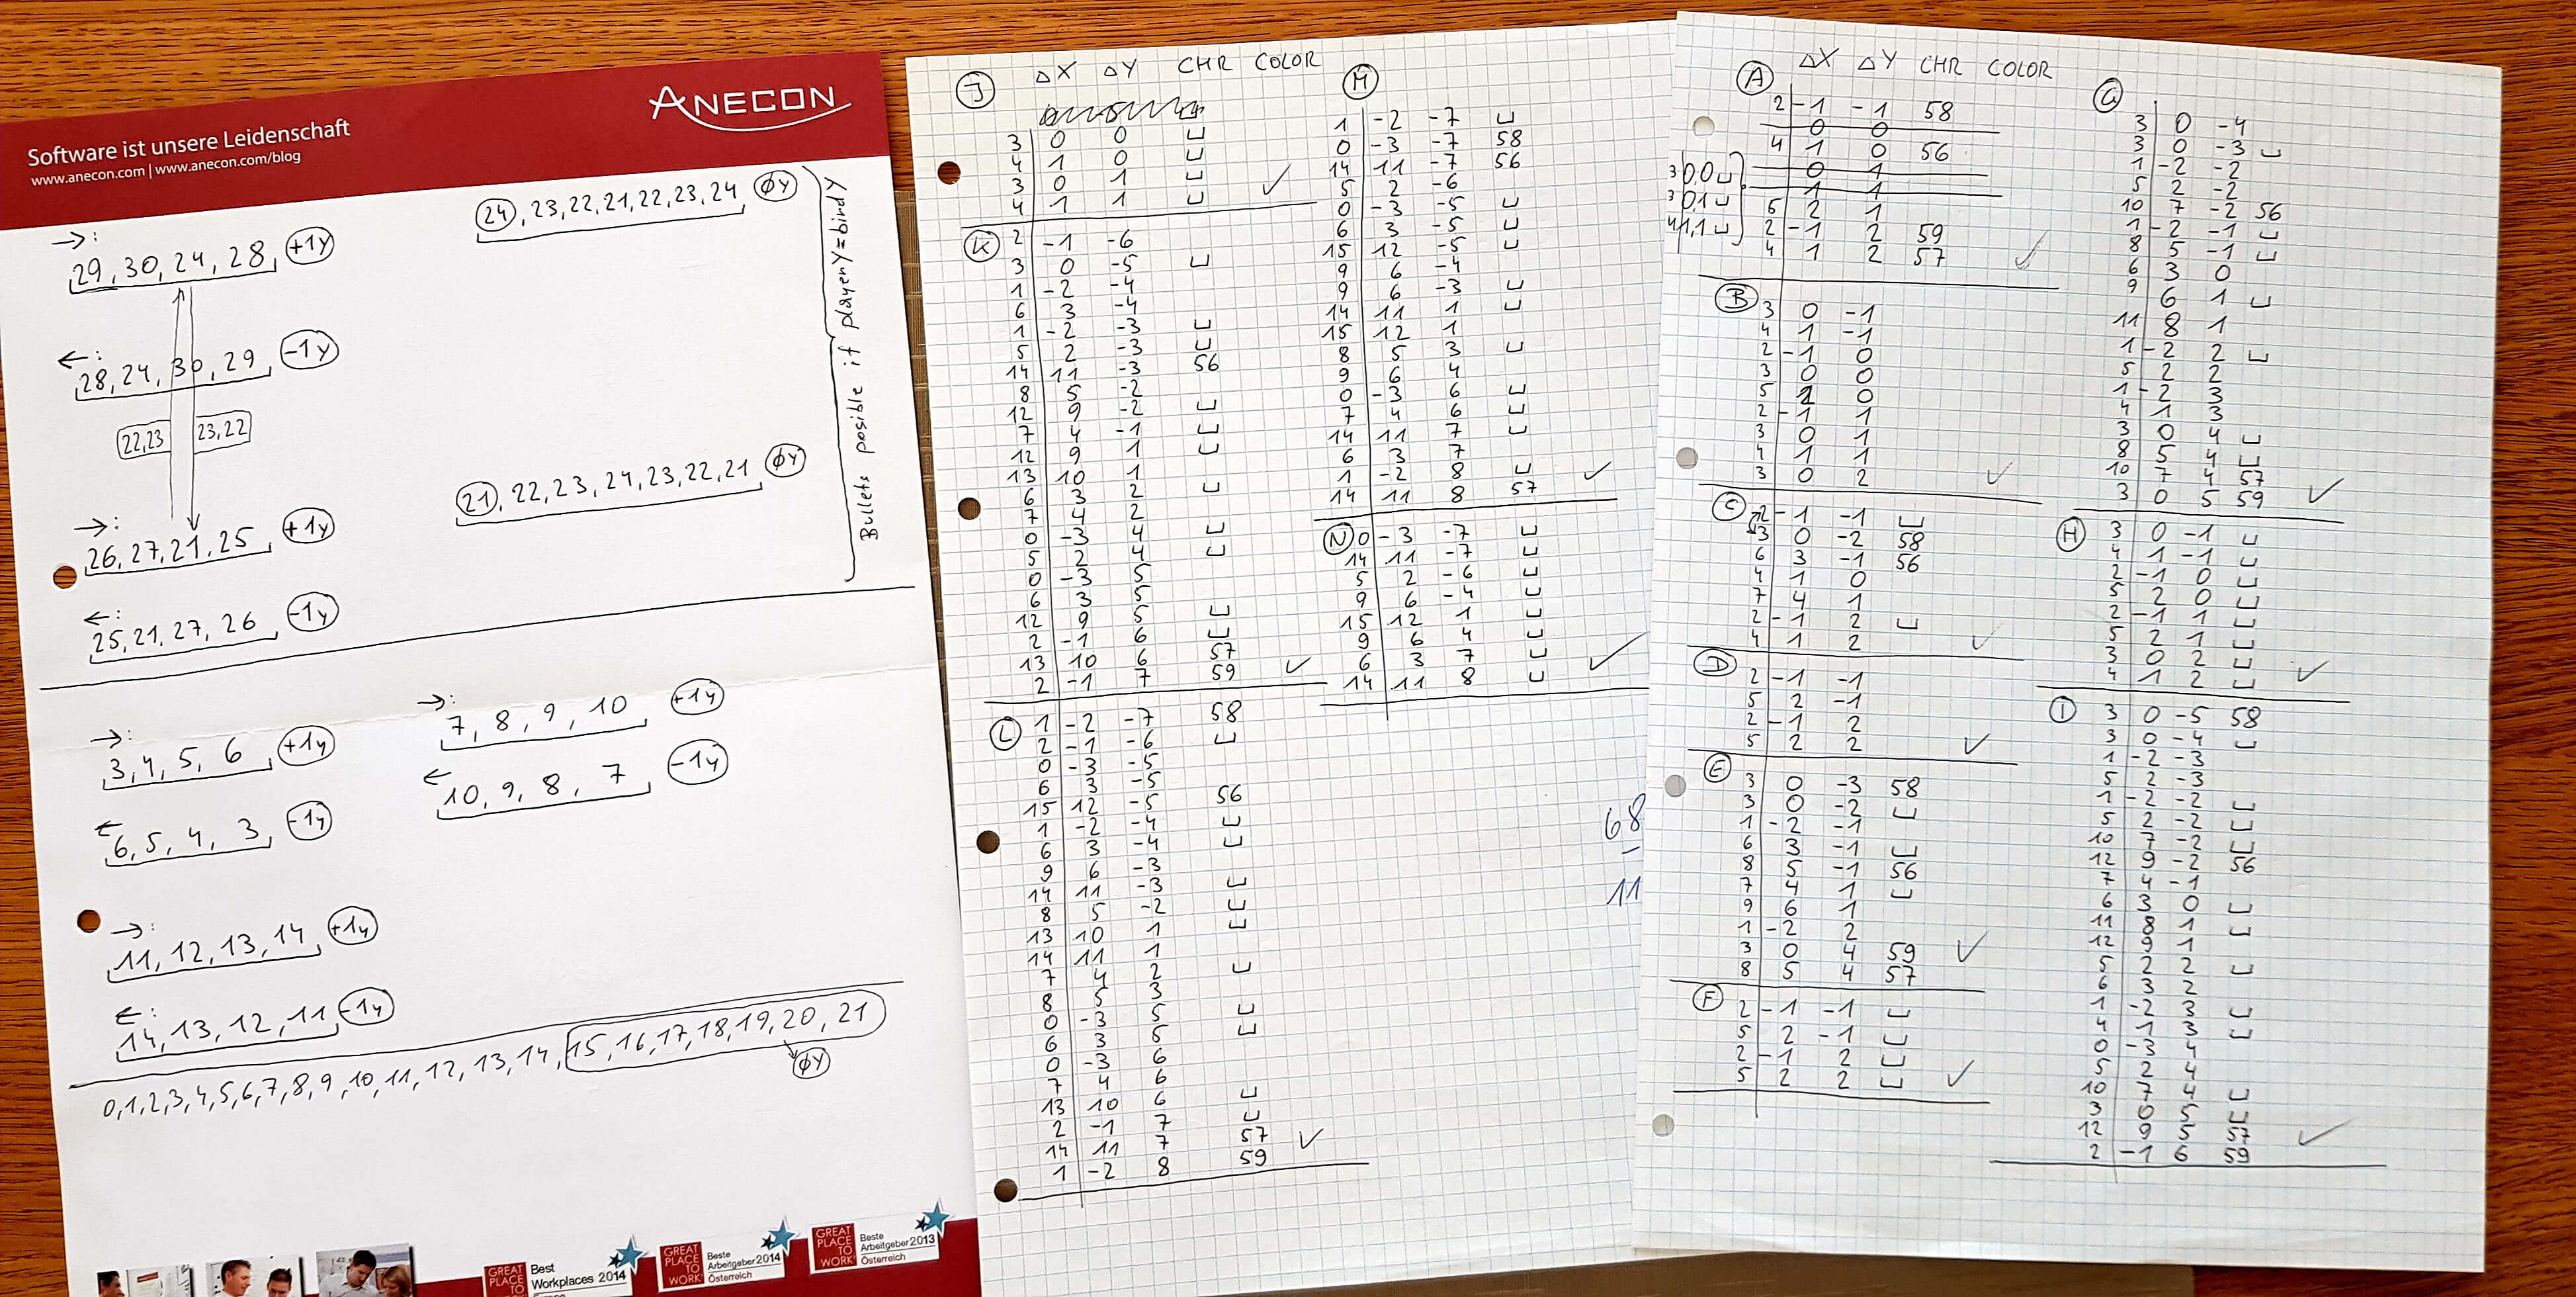 ANECON
Software ist unsere Leidenschaft
www.anecon.com | www.anecon.com/blog
→:
29, 30, 24, 28, +1Y
24, 23, 22, 21, 22, 23, 24 ØY
←:
28, 24, 30, 29 -1Y
22,23
23,22
Bullets posible if playerY=birdY
21, 22, 23, 24, 23, 22, 21 ØY
→:
26, 27, 21, 25 +1Y
←:
25, 21, 27, 26 -1Y
→:
3, 4, 5, 6 +1Y
→:
7, 8, 9, 10 +1Y
←
6, 5, 4, 3 -1Y
←
10, 9, 8, 7 -1Y
→:
11, 12, 13, 14 +1Y
←:
14, 13, 12, 11 -1Y
0,1,2,3,4,5,6,7,8,9,10,11,12,13,14,15,16,17,18,19,20,21
ØY
GREAT PLACE TO WORK
Best Workplaces 2014
GREAT PLACE TO WORK
Beste Arbeitgeber 2014
Österreich
GREAT PLACE TO WORK
Beste Arbeitgeber 2013
Österreich
ΔX ΔY CHR COLOR
J
3 0 0 ⌴
4 1 0 ⌴
3 0 1 ⌴
4 1 1 ⌴ ✓
K
2 -1 -6
3 0 -5 ⌴
1 -2 -4
6 3 -4
1 -2 -3 ⌴
5 2 -3 ⌴
14 11 -3 56
8 5 -2
12 9 -2 ⌴
7 4 -1 ⌴
12 9 1 ⌴
13 10 1
6 3 2 ⌴
7 4 2
0 -3 4 ⌴
5 2 4 ⌴
0 -3 5
6 3 5
12 9 5 ⌴
2 -1 6 ⌴
13 10 6 57
2 -1 7 59 ✓
L
1 -2 -7 58
2 -1 -6 ⌴
0 -3 -5
6 3 -5
15 12 -5 56
1 -2 -4 ⌴
6 3 -4 ⌴
9 6 -3
14 11 -3 ⌴
8 5 -2 ⌴
13 10 1 ⌴
14 11 1
7 4 2 ⌴
8 5 3
0 -3 5 ⌴
6 3 5 ⌴
0 -3 6
7 4 6
13 10 6 ⌴
2 -1 7 ⌴
14 11 7 57
1 -2 8 59 ✓
M
1 -2 -7 ⌴
0 -3 -7 58
14 11 -7 56
5 2 -6
0 -3 -5 ⌴
6 3 -5 ⌴
15 12 -5 ⌴
9 6 -4
9 6 -3 ⌴
14 11 1 ⌴
15 12 1
8 5 3 ⌴
9 6 4
0 -3 6 ⌴
7 4 6 ⌴
14 11 7 ⌴
6 3 7
1 -2 8 ⌴
14 11 8 57 ✓
N
0 -3 -7 ⌴
14 11 -7 ⌴
5 2 -6 ⌴
9 6 -4 ⌴
15 12 1 ⌴
9 6 4 ⌴
6 3 7 ⌴
14 11 8 ⌴ ✓
68
-
11
ΔX ΔY CHR COLOR
A
2 -1 -1 58
0 0
4 1 0 56
0 1
1 1
5 2 1
2 -1 2 59
4 1 2 57 ✓
3 0,0 ⌴
3 0,1 ⌴
4 1,1 ⌴
B
3 0 -1
4 1 -1
2 -1 0
3 0 0
5 2 0
2 -1 1
3 0 1
4 1 1
3 0 2 ✓
C
2 -1 -1 ⌴
3 0 -2 58
6 3 -1 56
4 1 0
7 4 1
2 -1 2 ⌴
4 1 2 ✓
D
2 -1 -1
5 2 -1
2 -1 2
5 2 2 ✓
E
3 0 -3 58
3 0 -2 ⌴
1 -2 -1
6 3 -1 ⌴
8 5 -1 56
7 4 1 ⌴
9 6 1
1 -2 2
3 0 4 59
8 5 4 57 ✓
F
2 -1 -1 ⌴
5 2 -1 ⌴
2 -1 2 ⌴
5 2 2 ⌴ ✓
G
3 0 -4
3 0 -3 ⌴
1 -2 -2
5 2 -2
10 7 -2 56
1 -2 -1 ⌴
8 5 -1 ⌴
6 3 0
9 6 1 ⌴
11 8 1
1 -2 2 ⌴
5 2 2
1 -2 3
4 1 3
3 0 4 ⌴
8 5 4 ⌴
10 7 4 57
3 0 5 59 ✓
H
3 0 -1 ⌴
4 1 -1 ⌴
2 -1 0 ⌴
5 2 0 ⌴
2 -1 1 ⌴
5 2 1 ⌴
3 0 2 ⌴
4 1 2 ⌴ ✓
I
3 0 -5 58
3 0 -4 ⌴
1 -2 -3
5 2 -3
1 -2 -2 ⌴
5 2 -2 ⌴
10 7 -2 ⌴
12 9 -2 56
7 4 -1
6 3 0 ⌴
11 8 1 ⌴
12 9 1
5 2 2 ⌴
6 3 2
1 -2 3 ⌴
4 1 3 ⌴
0 -3 4
5 2 4
10 7 4 ⌴
3 0 5 ⌴
12 9 5 57
2 -1 6 59 ✓